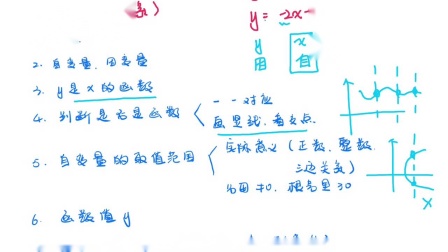 系)
y = -2x-
y x
因 自
2. 自变量、因变量
3. y是x的函数
4. 判断是否是函数 一一对应
画竖线,看交点.
5. 自变量的取值范围 实际意义(正数、整数、
三边关系)
分母≠0、根号里≥0
X
6. 函数值 y